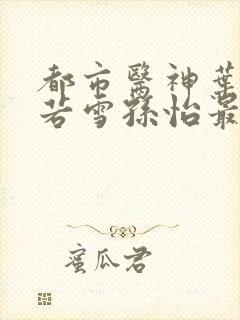 都市醫神葉
若雪孫怡最
蜜瓜君